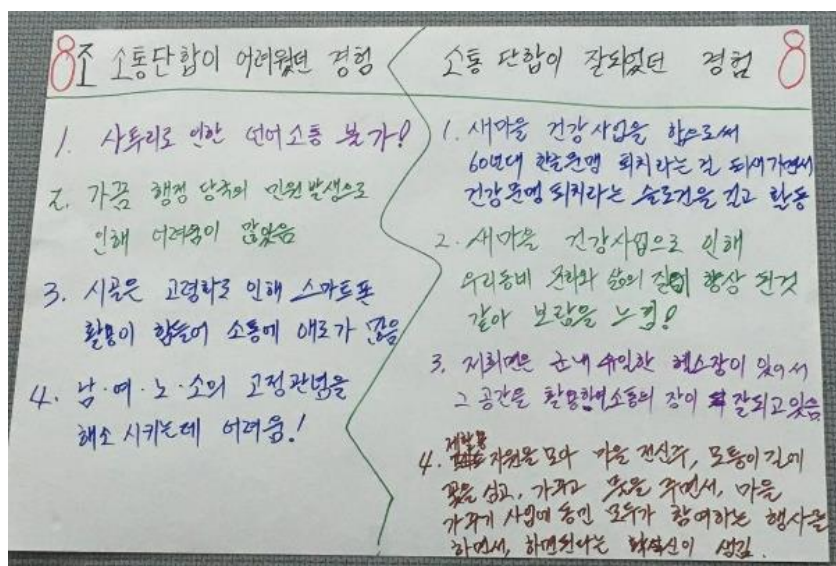 8조 소통단합이 어려웠던 경험
1. 사투리로 인한 언어소통 불가!
2. 가끔 행정 당국의 민원발생으로
인해 어려움이 많았음
3. 시골은 고령화로 인해 스마트폰
활용이 힘들어 소통에 애로가 많음
4. 남·여·노·소의 고정관념을
해소 시키는데 어려움!
소통 단합이 잘되었던 경험 8
1. 새마을 건강사업을 함으로써
60년대 한글문맹 퇴치라는 걸 되새기면서
건강문맹퇴치라는 슬로건을 걸고 활동
2. 새마을 건강사업으로 인해
우리동네 문화와 삶의 질이 향상 된것
같아 보람을 느낌!
3. 저희면은 군내 유일한 헬스장이 있어서
그 공간을 활용하여 소통의 장이 잘되고있음
4. 재활용 자원을 모아 마을 전신주, 모퉁이길에
꽃을 심고, 가꾸고 물을 주면서, 마을
가꾸기 사업에 동민 모두가 참여하는 행사를
하면서, 하면된다는 확신이 생김.